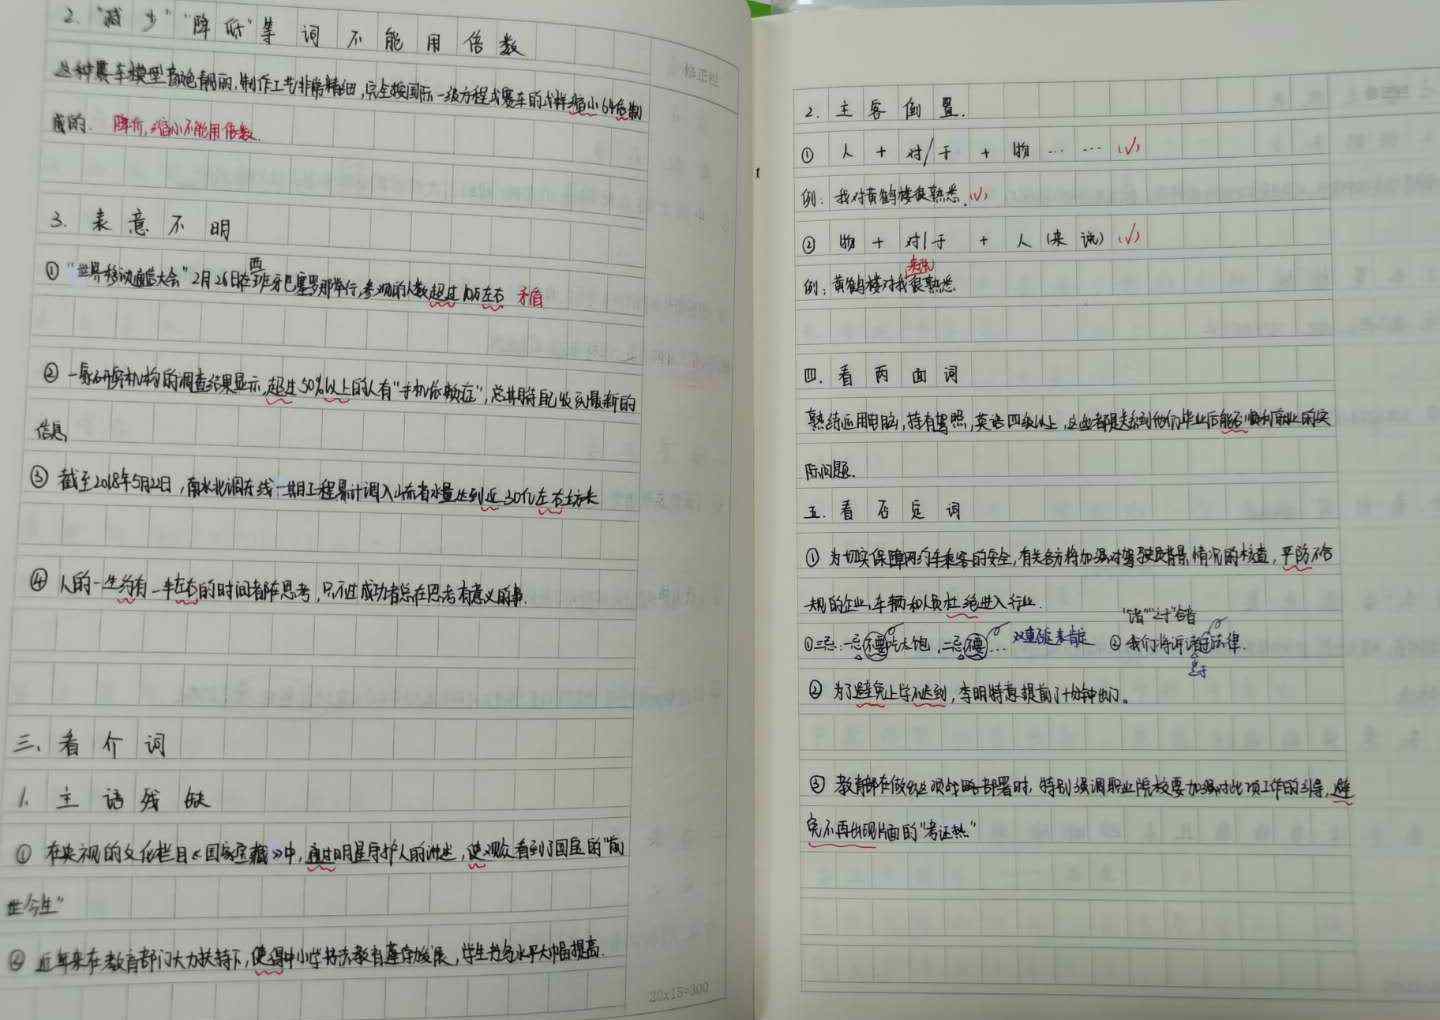 2. "减少""降低"等词不能用倍数
这种赛车模型颜色鲜丽,制作工艺非常精细,完全按国际一级方程式赛车的式样缩小64倍制
成的. 降价,缩小不能用倍数.
修正栏
3. 表意不明
①"世界移动通信大会"2月26日在西班牙巴塞罗那举行,参观的人数超过10万左右 矛盾
② 一家研究机构的调查结果显示,超过50%以上的人有"手机依赖症",总期待自己收到最新的
信息
③ 截至2018年5月2日,南水北调东线一期工程累计调入山东省水量达到近30亿左右立方米
④ 人的一生约有一半左右的时间都在思考,只不过成功者总在思考有意义的事.
三、看介词
1. 主语残缺
① 在央视的文化栏目《国家宝藏》中,通过明星守护人的讲述,使观众看到了国宝的"前
世今生"
② 近年来在教育部门大力扶持下,使得中小学书法教育蓬勃发展,学生书写水平大幅提高.
20x15=300
2. 主客倒置.
① 人+对/于+物…… (√)
例:我对黄鹤楼很熟悉.(√)
② 物+对/于+人(来说) (√)
来说
例:黄鹤楼对我很熟悉.
四.看两面词
熟练运用电脑,持有驾照,英语四级以上,这些都是关系到他们毕业后能否顺利就业的实
际问题.
五.看否定词
① 为切实保障网约车乘客的安全,有关各方将加强对驾驶员背景情况的核查,严防不合
规的企业、车辆和人员杜绝进入行业.
"诸""之于"合音
①二忌:一忌不要吃太饱,二忌不要… 双重否定表肯定 ②我们将诉诸于法律.
② 为了避免上学不迟到,李明特意提前了十分钟出门。
③ 教育部在做出这项战略部署时,特别强调职业院校要加强对此项工作的引导,避
免不再出现片面的"考证热"